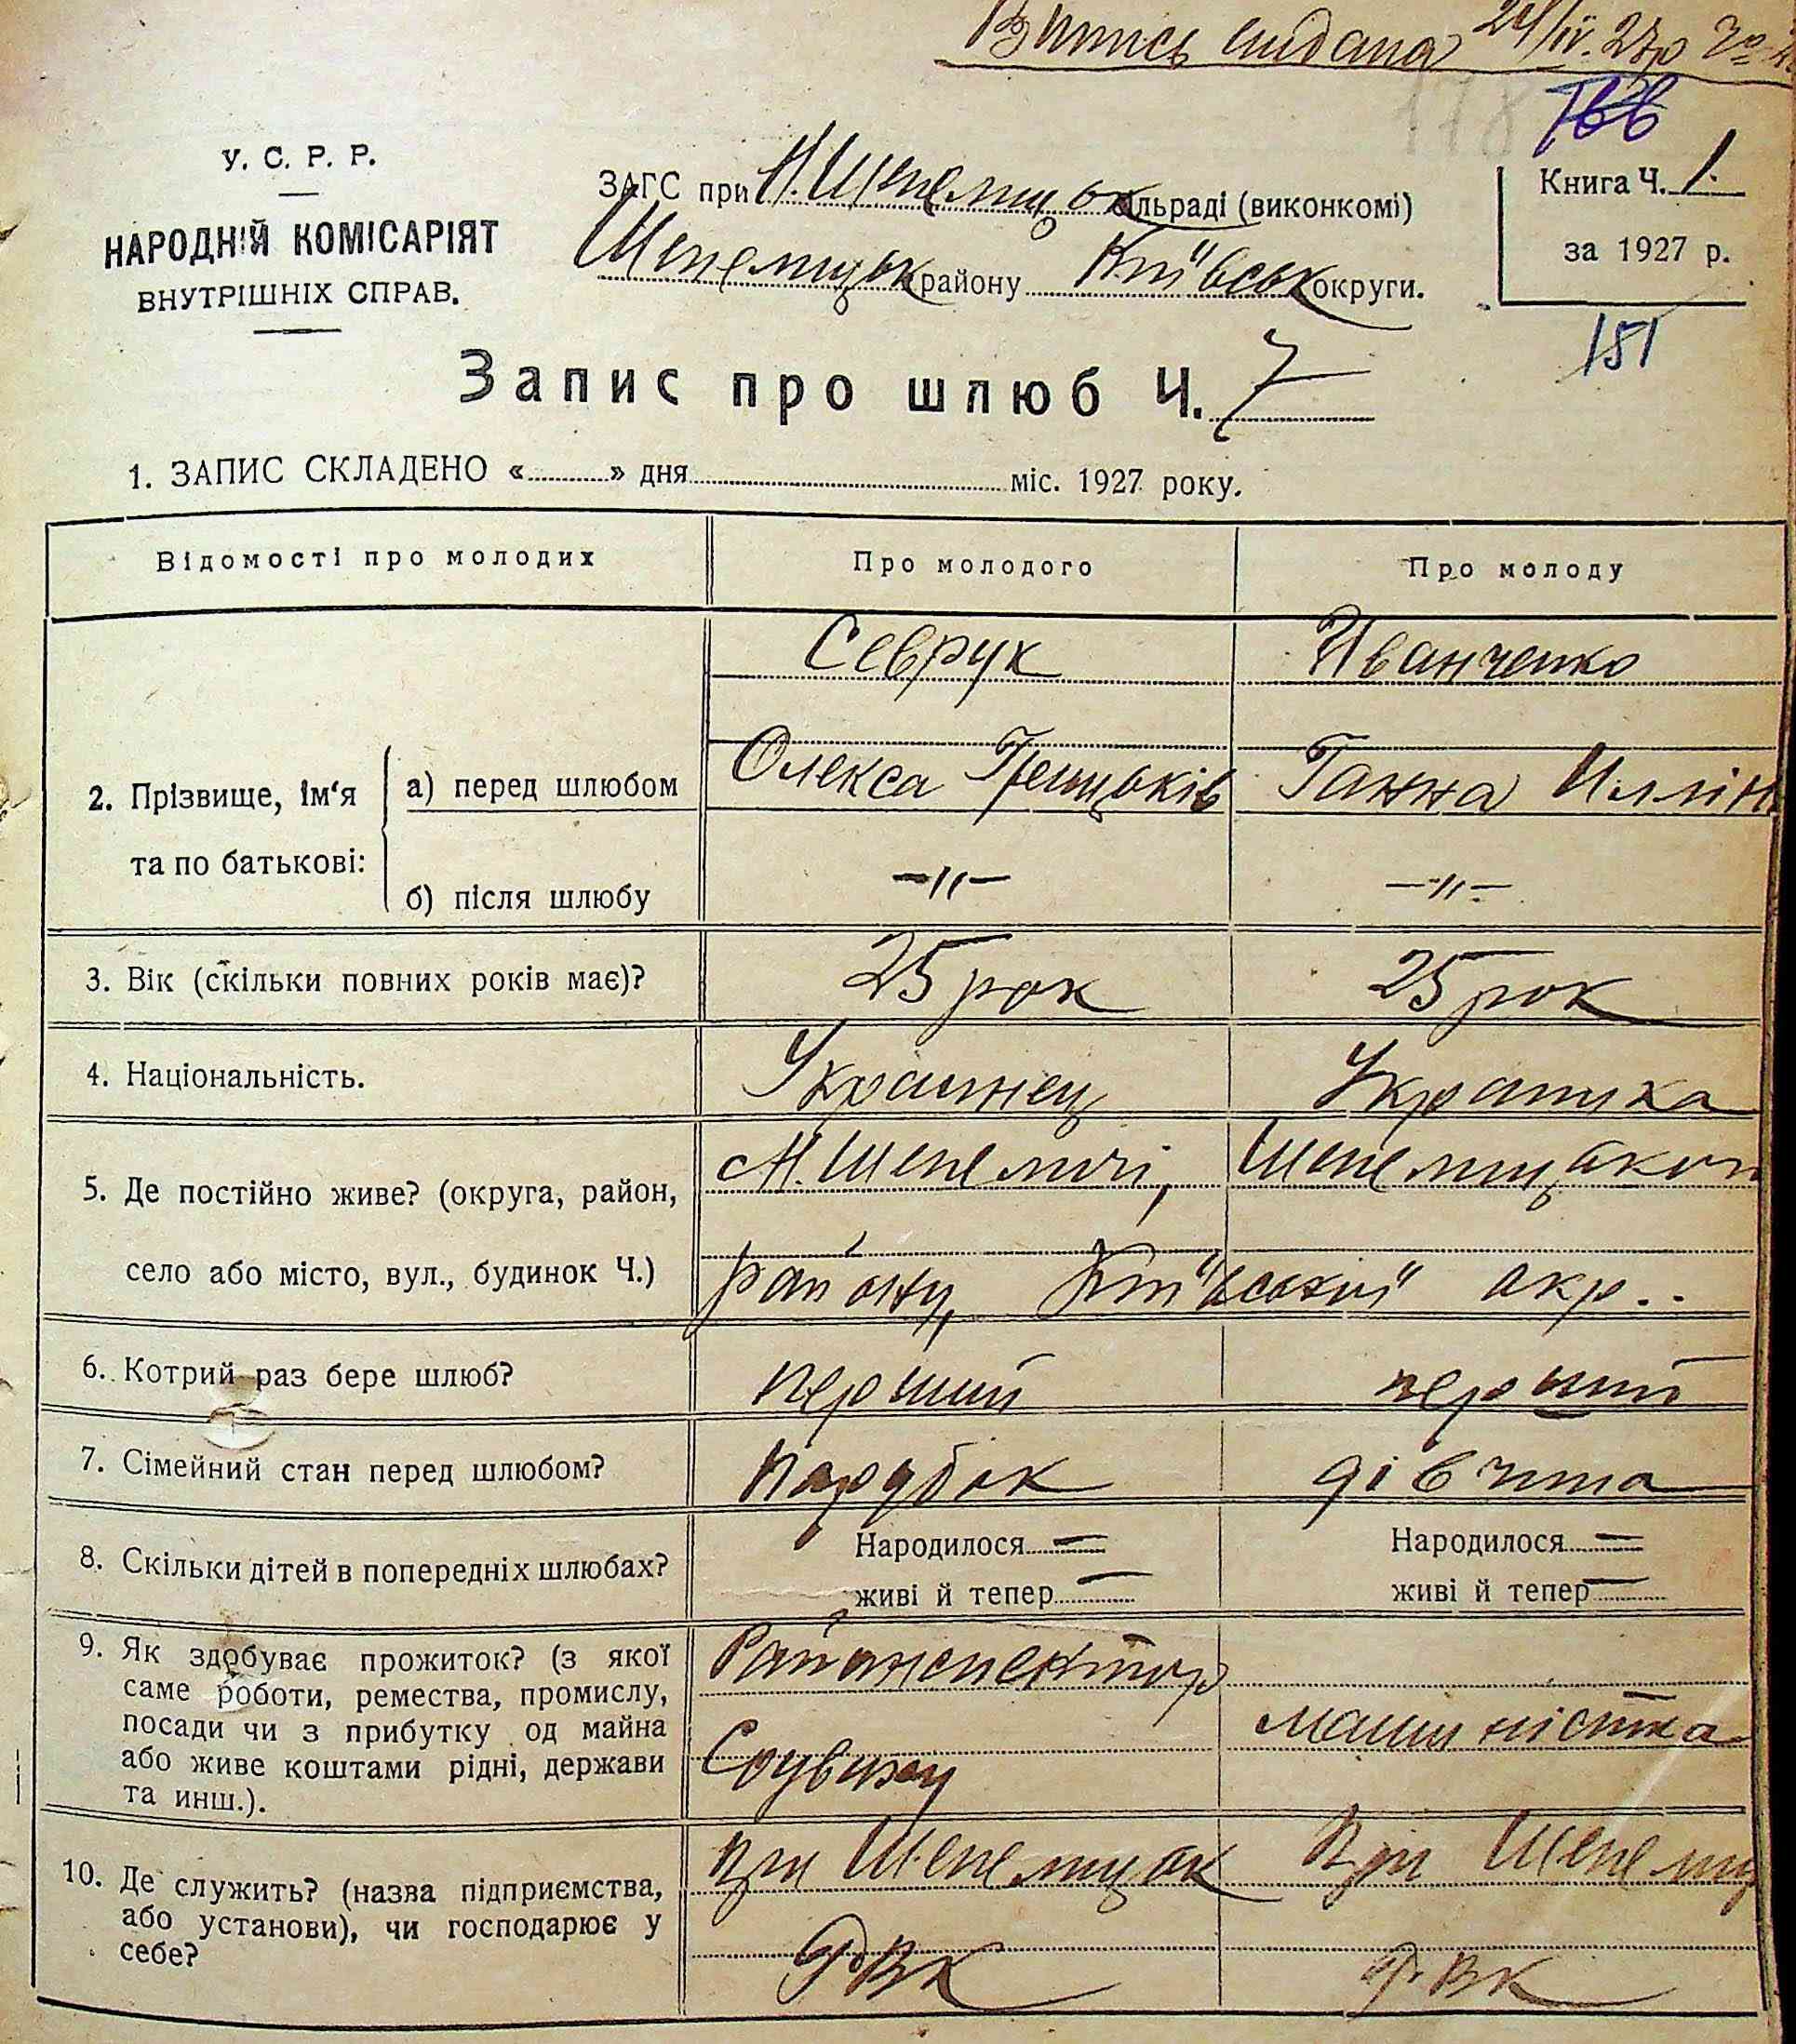 Витись видана 24/IV.27р
178
166
У. С. Р. Р.
НАРОДНІЙ КОМІСАРІЯТ
ВНУТРІШНІХ СПРАВ.
ЗАГС при Н. Шепелицьк сільраді (виконкомі)
Шепелицьк району Київськ округи.
Книга Ч. 1.
за 1927 р.
151
Запис про шлюб Ч. 7
1. ЗАПИС СКЛАДЕНО «..........» дня.............................. міс. 1927 року.
Відомості про молодих Про молодого Про молоду
Севрук Иванченко
2. Прізвище, ім'я та по батькові:
а) перед шлюбом Олекса Грицьків Ганна Иллін
б) після шлюбу —//— —//—
3. Вік (скільки повних років має)? 25 рок 25 рок
4. Національність. Украинец Украинка
5. Де постійно живе? (округа, район, Н. Шепеличі, Шепелицьког
село або місто, вул., будинок Ч.) району, Київської окр..
6. Котрий раз бере шлюб? перший перший
7. Сімейний стан перед шлюбом? парубок дівчина
8. Скільки дітей в попередніх шлюбах? Народилося — Народилося —
живі й тепер — живі й тепер —
9. Як здобуває прожиток? (з якої
саме роботи, ремества, промислу,
посади чи з прибутку од майна
або живе коштами рідні, держави
та инш.).
Райинспектор
Соцвиху
машиністка
10. Де служить? (назва підприємства,
або установи), чи господарює у
себе?
При Шепелицьк При Шепелиц
РВК РВК